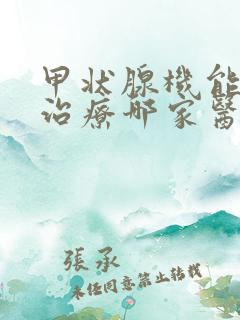 甲状腺機能
治療哪家醫
張承
未經同意禁止轉載